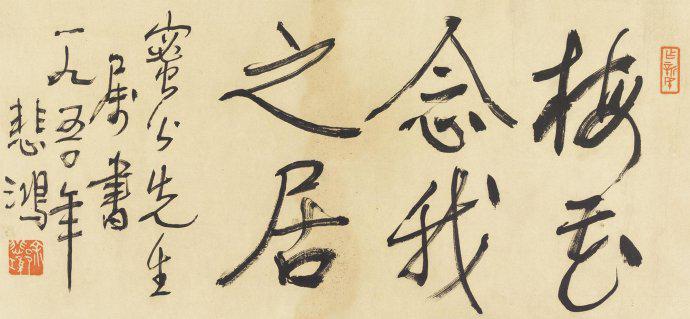 梅花
念我
之居
蜜公先生
属書
一九五〇年
悲鴻